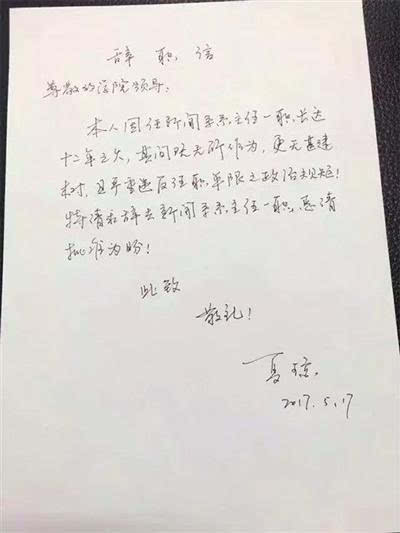 辞职信
尊敬的学院领导:
本人因任新闻学系主任一职长达
十二年之久,其间既无所作为,更无甚建
树,且严重违反任职年限之政治规矩!
特请求辞去新闻学系主任一职,恳请
批准为盼!
此致
敬礼!
夏琼
2017.5.17